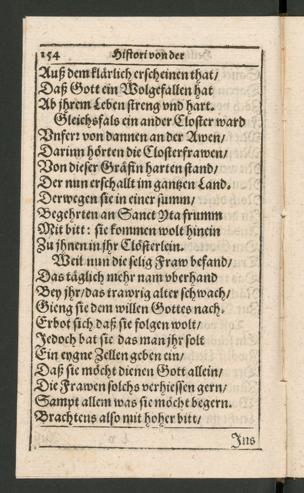 154 Histori von der
Auß dem klärlich erscheinen that/
Daß Gott ein Wolgefallen hat
Ab jhrem Leben streng vnd hart.
Gleichsfals ein ander Closter ward
Vnferꝛ von dannen an der Awen/
Darinn hörten die Closterfrawen/
Von dieser Gräfin harten stand/
Der nun erschallt im gantzen Land.
Derwegen sie in einer summ/
Begehrten an Sanct Yta frumm
Mit bitt: sie kommen wolt hinein
Zu jhnen in jhr Clösterlein.
Weil nun die selig Fraw befand/
Das täglich mehr nam vberhand
Bey jhr/ das trawrig alter schwach/
Gieng sie dem willen Gottes nach.
Erbot sich daß sie folgen wolt/
Jedoch bat sie das man jhr solt
Ein eygne Zellen geben ein/
Daß sie möcht dienen Gott allein/
Die Frawen solchs verhiessen gern/
Sampt allem was sie möcht begern.
Brachtens also mit hoher bitt/
Jns